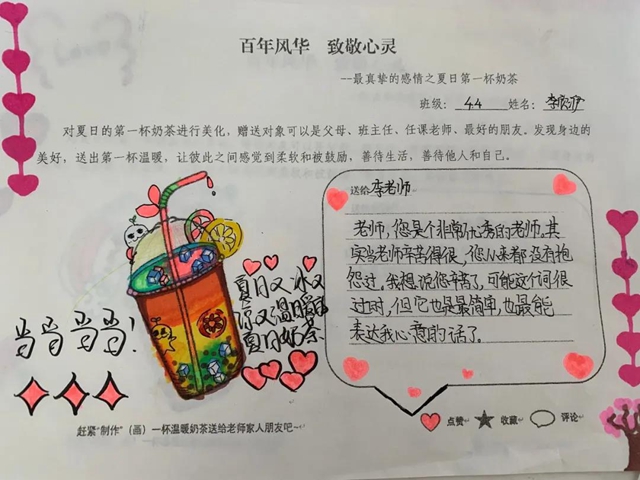 百年风华 致敬心灵
--最真挚的感情之夏日第一杯奶茶
班级: 44 姓名: 李
对夏日的第一杯奶茶进行美化，赠送对象可以是父母、班主任、任课老师、最好的朋友。发现身边的
美好，送出第一杯温暖，让彼此之间感觉到柔软和被鼓励，善待生活，善待他人和自己。
送给 李老师
老师，您是个非常优秀的老师.其
实当老师辛苦得很，您从来都没有抱
怨过，我想说您辛苦了，可能这个词很
过时，但它也是最简单，也最能
表达我心意的话了。
夏日又冰又
凉又温暖的
夏日奶茶
当当当当！
点赞 收藏 评论
赶紧“制作”（画）一杯温暖奶茶送给老师家人朋友吧~